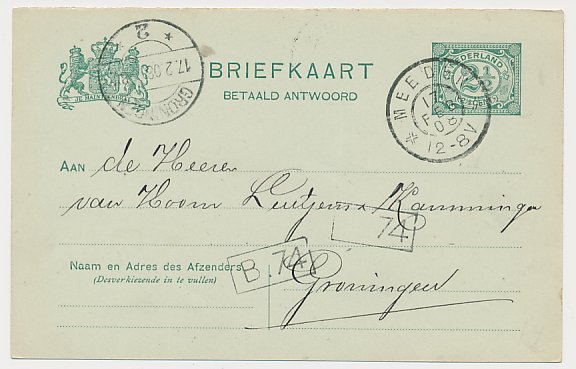 GRONINGEN
17.2.08
2
JE MAINTIENDRAI
BRIEFKAART
BETAALD ANTWOORD
NEDERLAND
2½
CENT
MEEDEN
17
FEB
08
12-8V
AAN de Heeren
van Hoorn Luitjens & Kamminga
74
B.74
Groningen
Naam en Adres des Afzenders
(Desverkiezende in te vullen)